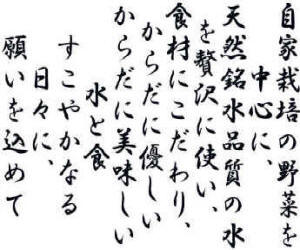 自家栽培の野菜を
中心に、
天然銘水品質の水
を贅沢に使い、
食材にこだわり、
からだに優しい
からだに美味しい
水と食
すこやかなる
日々に、
願いを込めて